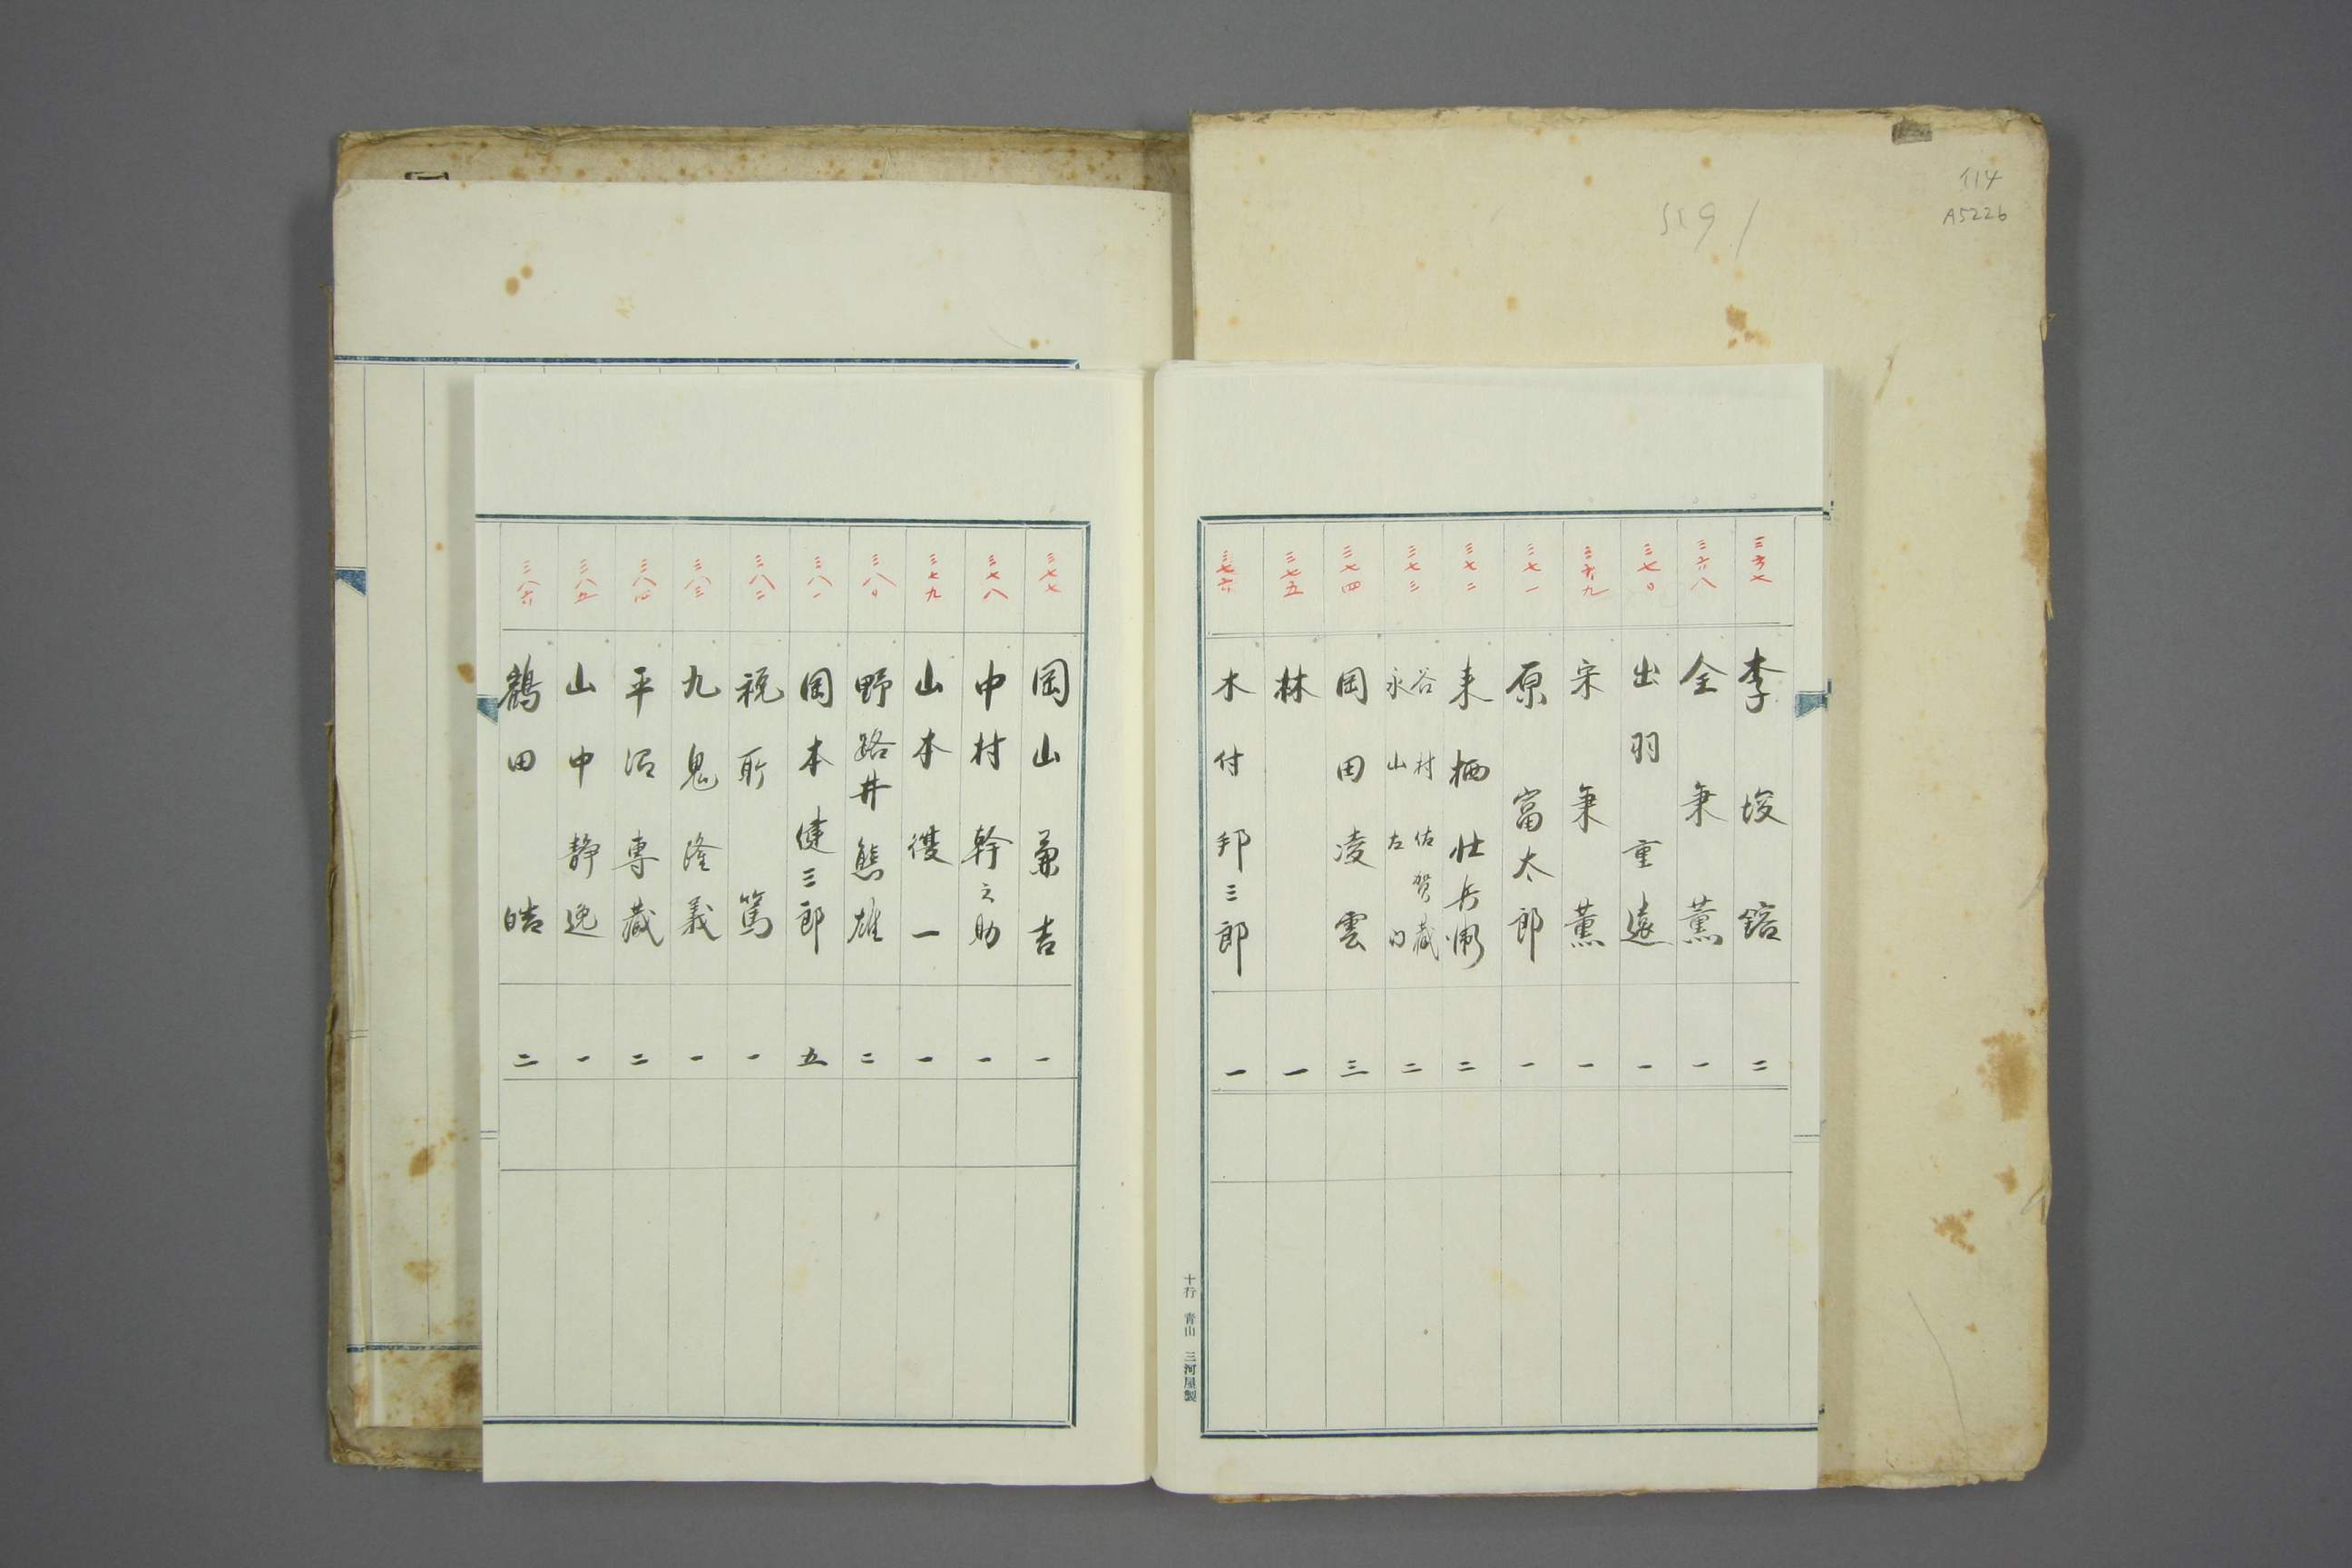 114
A5226
三六七 李埈鎔 二
三六八 全秉薫 一
三七〇 出羽重遠 一
三六九 宋秉薫 一
三七一 原富太郎 一
三七二 来栖壮兵衛 二
三七三 谷村佐賀蔵 永山左内 二
三七四 岡田凌雲 三
三七五 林 一
三七六 木付邦三郎 一
十行 青山 三河屋製
三七七 岡山兼吉 一
三七八 中村幹之助 一
三七九 山本復一 一
三八〇 野路井熊雄 二
三八一 岡本健三郎 五
三八二 税所篤 一
三八三 九鬼隆義 一
三八四 平沼専蔵 二
三八五 山中静逸 一
三八六 鶴田皓 二